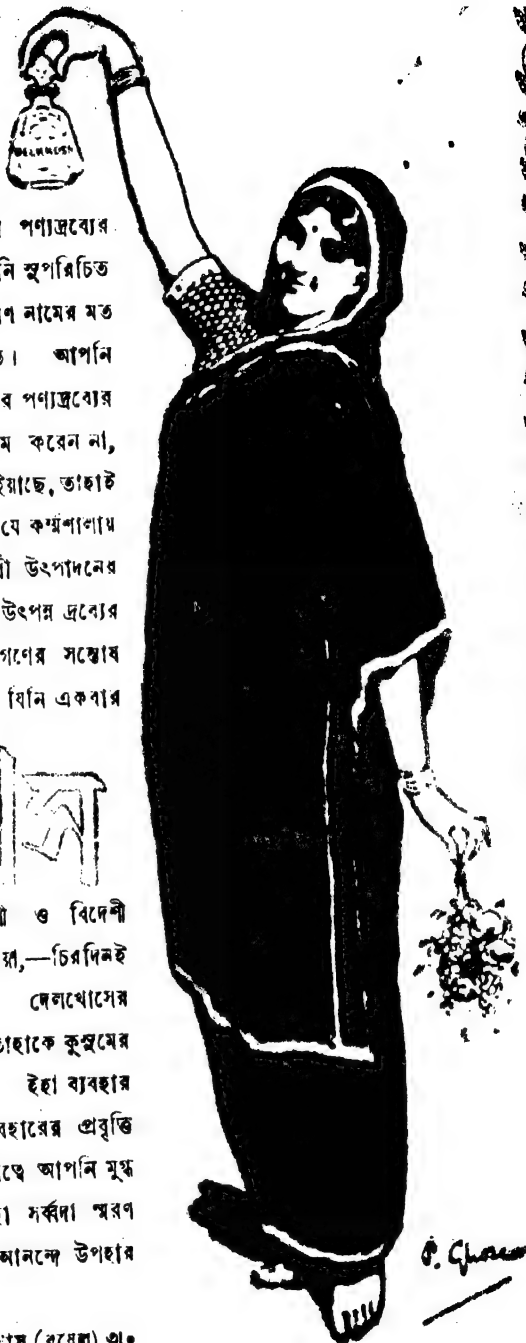 DELKHOSH
পণ্যদ্রব্যের
নি সুপরিচিত
রণ নামের মত
আপনি
ব পণ্যদ্রব্যের
ম করেন না,
ইয়াছে, তাহাই
যে কর্ম্মশালায়
রী উৎপাদনের
উৎপন্ন দ্রব্যের
গণের সন্তোষ
যিনি একবার
ও বিদেশী
চিরদিনই
দেলখোসের
তাহাকে কুসুমের
ইহা ব্যবহার
বহারের প্রবৃত্তি
ত্বে আপনি মুগ্ধ
হা সর্ব্বদা স্মরণ
আনন্দে উপহার
P. Ghose